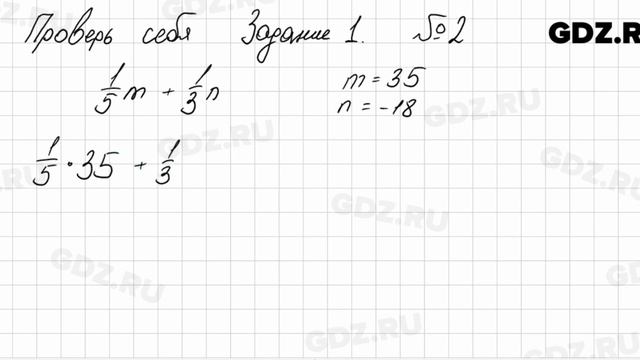 Проверь себя Задание 1. №2 GDZ.RU
1/5 m + 1/3 n
m = 35
n = -18
1/5 · 35 + 1/3
GDZ.RU
GDZ.RU
GDZ.RU
GDZ.RU
GDZ.RU
GDZ.RU